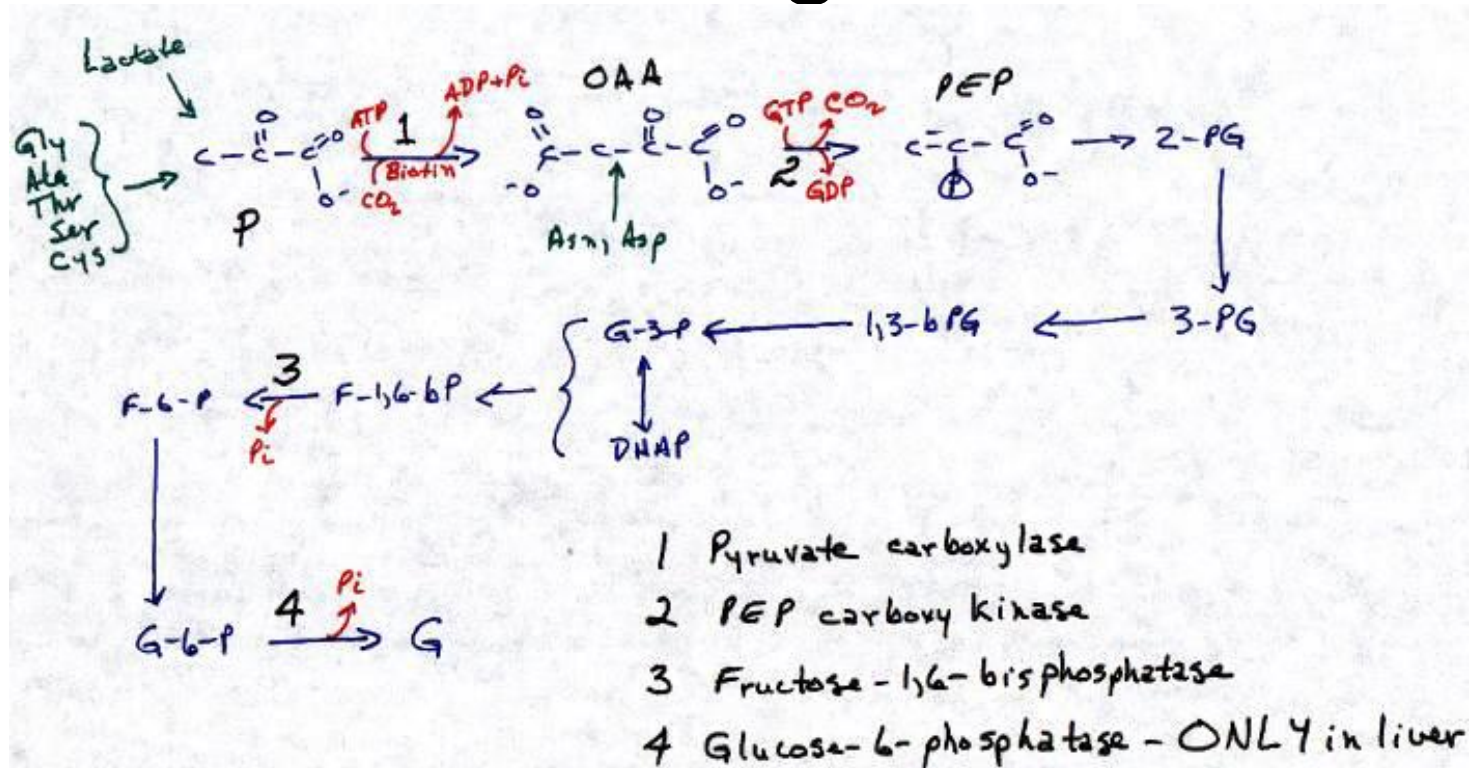 Lactate
Gly
Ala
Thr
Ser
Cys
C-C-C
O
O
O-
P
ATP
1
ADP+Pi
Biotin
CO2
OAA
O
C-C-C-C
O
O
-O
O-
Asn, Asp
GTP CO2
2
GDP
PEP
C=C-C
O
P
O-
2-PG
G-3-P
1,3-bPG
3-PG
F-6-P
3
Pi
F-1,6-bP
DHAP
G-6-P
4
Pi
G
1 Pyruvate carboxylase
2 PEP carboxy kinase
3 Fructose-1,6-bisphosphatase
4 Glucose-6-phosphatase - ONLY in liver